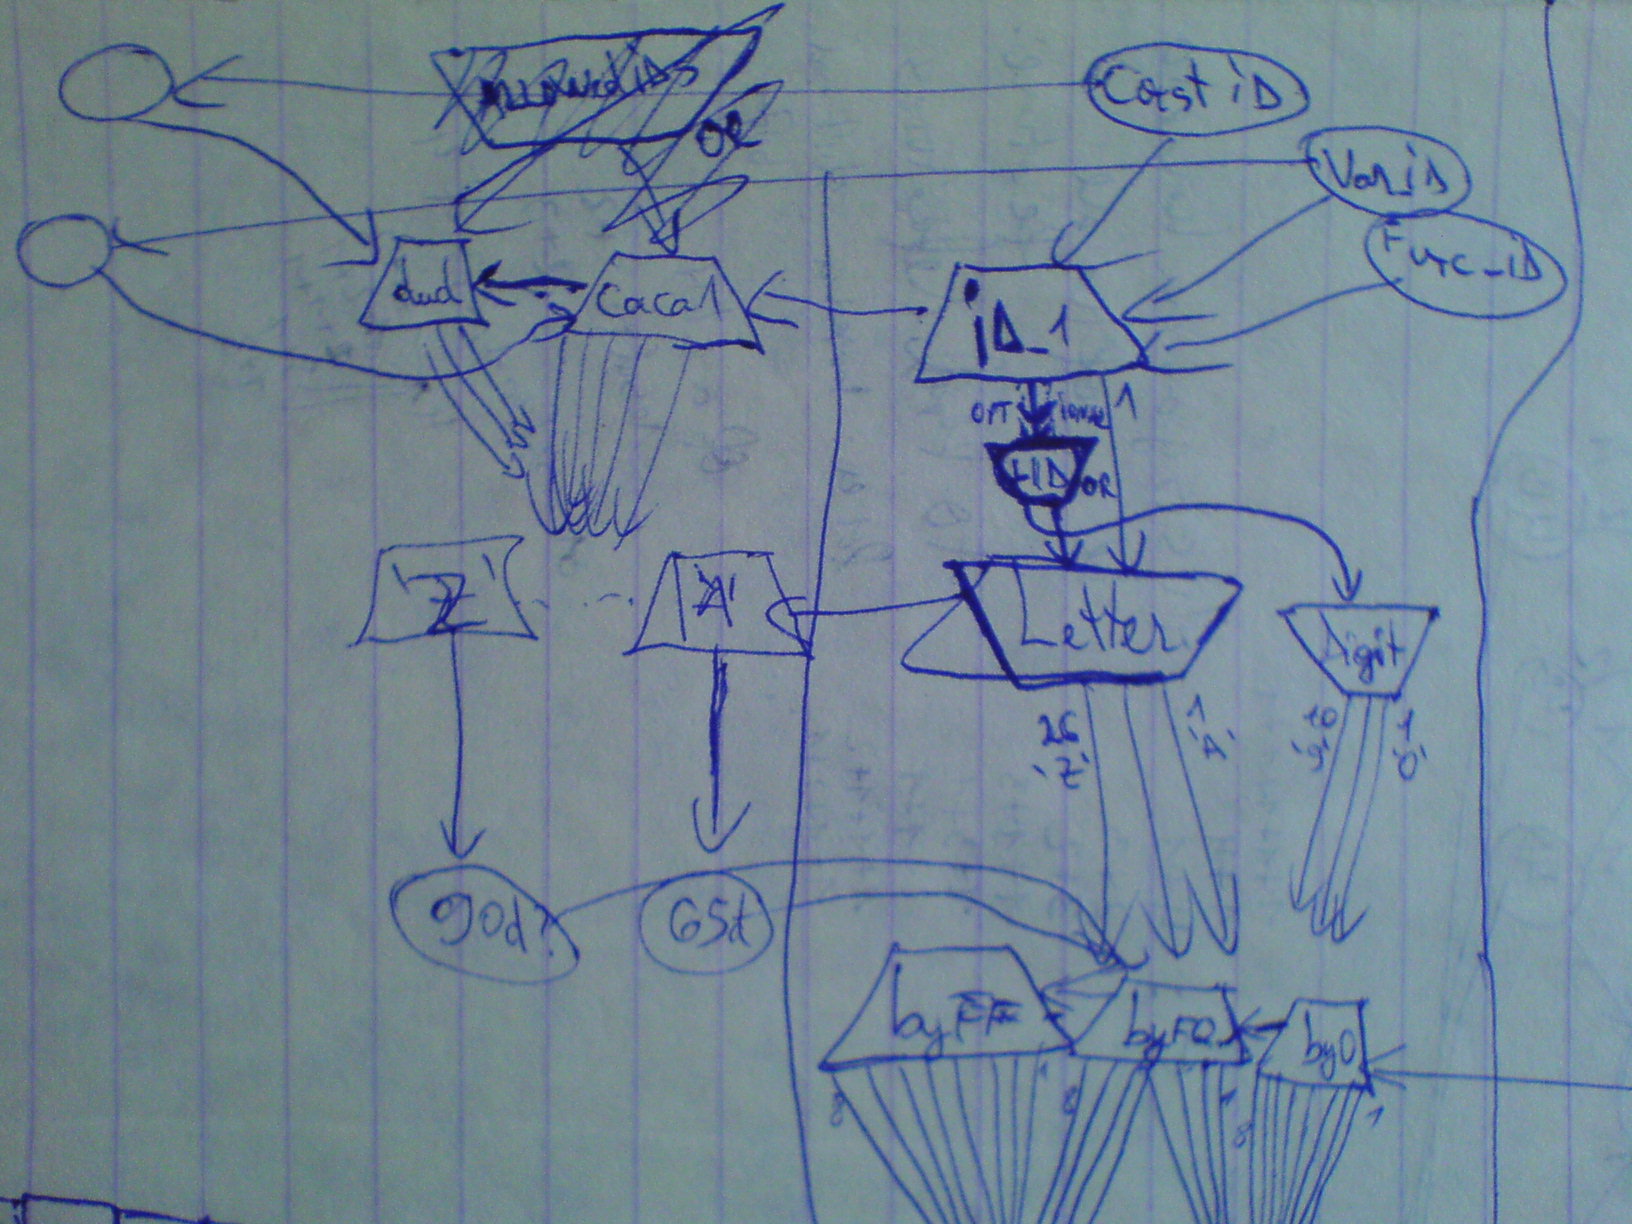 OR
Const iD
Var_iD
Func_iD
dud
caca1
iD_1
OPT
1
tID
OR
'Z'
'A'
Letter
Digit
26
'Z'
1
'A'
10
'9'
1
'0'
90d?
65d
byFF
byF0
by0
8
1
8
1
8
1